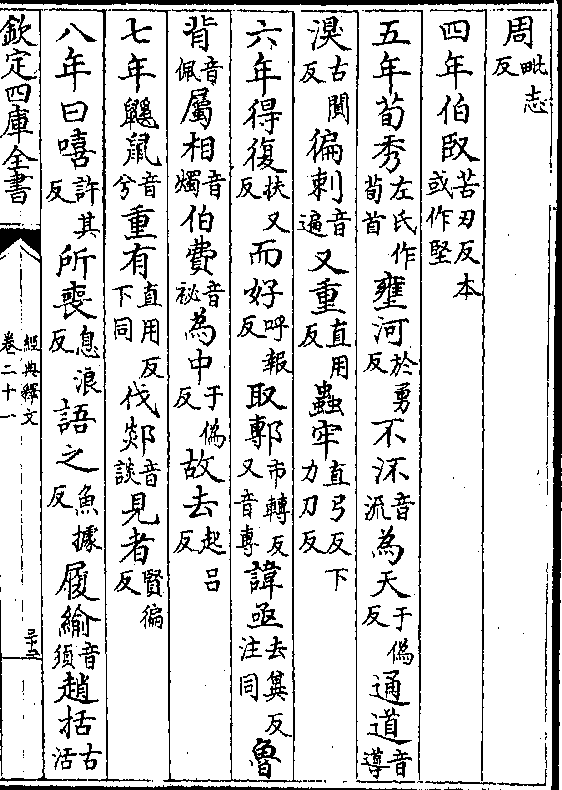 周毗志反
四年伯臤苦刃反本或作堅
五年荀秀左氏作荀首壅河於勇反不沠音流為天于偽反通道音導
湨古闃反徧刺音遍又重直用反蟲牢直弓反下力刀反
六年得復扶又反而好呼報反取鄟市轉反又音專諱亟去冀反注同魯
背音佩屬相音燭伯費音祕為中于偽反故去起呂反
七年鼷鼠音兮重有直用反下同伐郯音談見者賢徧反
八年曰嘻許其反所喪息浪反語之魚據反履緰音須趙括古活
欽定四庫全書
經典釋文
卷二十一